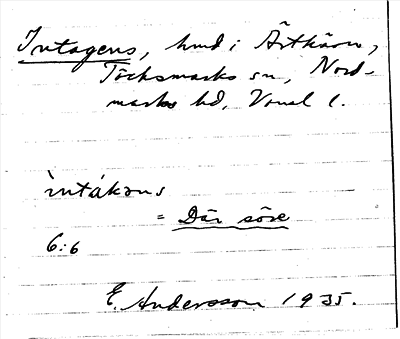 Intagens, hmd i Årtkärn,
Töcksmarks sn, Nord-
marks hd, Vrml l.
ìntákəns
= Där söre
6:6
E. Andersson 1935.